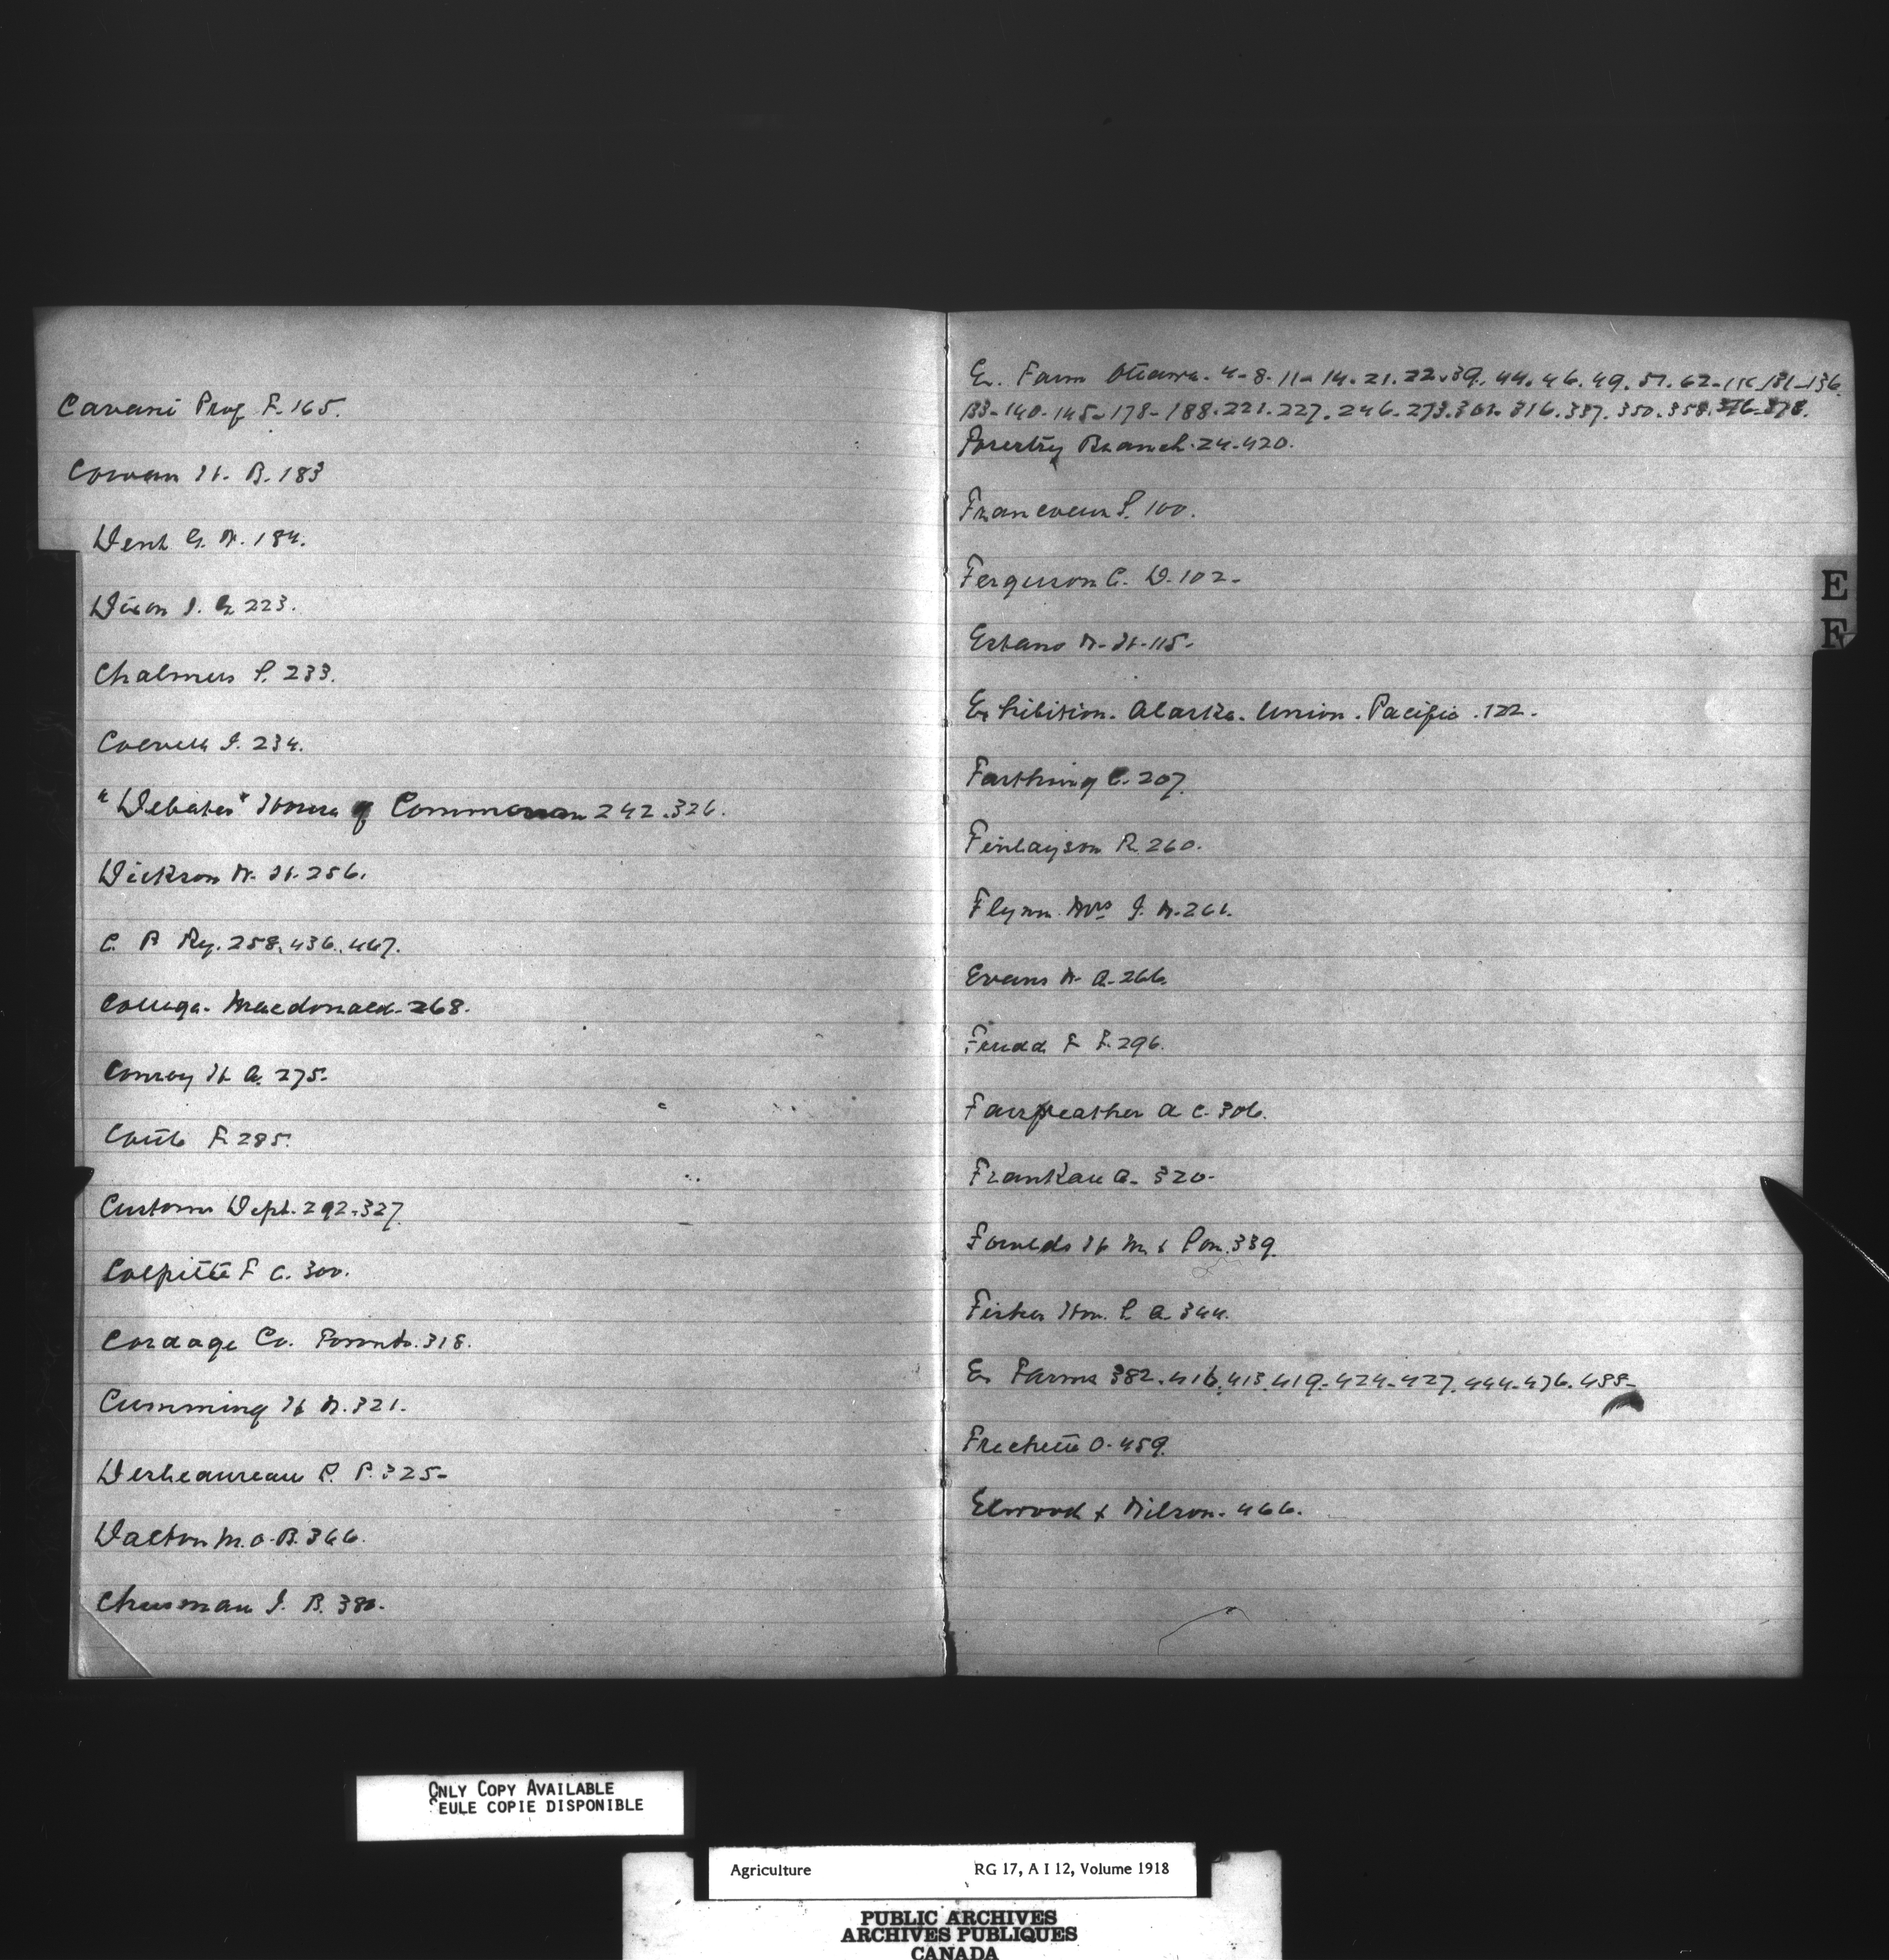 Cavani Prof F. 165.
Cowan H. B. 183
Dent G. W. 184.
Dixon J. G. 223.
Chalmers S. 233.
J. 234.
"Debates" House of Common 242.326.
Dickson W. H. 256.
C. P Ry. 258.436.467.
College. Macdonald. 268.
Conroy H. A. 275.
F. 285.
Customs Dept. 292.327
Colpitts F C. 300.
Cordage Co. Toronto. 318.
Cumming H W. 321.
P. P. 325-
Dalton M. O. B. 366.
J. B. 380.
Ex. Farm Ottawa. 4-8-11-14.21.22.39.44.46.49.57.62-116.131-136.
133-140-145-178-188.221.227.246.273.302.316.337.350.358.376-378.
Forestry Branch. 24-420.
Francoeur S. 100.
Ferguson C. D. 102-
W. H. 115-
Exhibition. Alaska. Union. Pacific. 122.
Farthing C. 207.
Finlayson R. 260.
Flynn. Mrs J. W. 261.
Evans W. A. 266.
F F. 296.
Fairweather A C. 306.
Frankau A. 320-
Foulds H M & Son. 339.
Fisher Hon. S. A 344.
Ex Farms 382.416.413.419-424-427.444-476.488-
Frechette O. 459.
Elwood & Wilson. 466.
E
F
ONLY COPY AVAILABLE
SEULE COPIE DISPONIBLE
Agriculture RG 17, A I 12, Volume 1918
PUBLIC ARCHIVES
ARCHIVES PUBLIQUES
CANADA